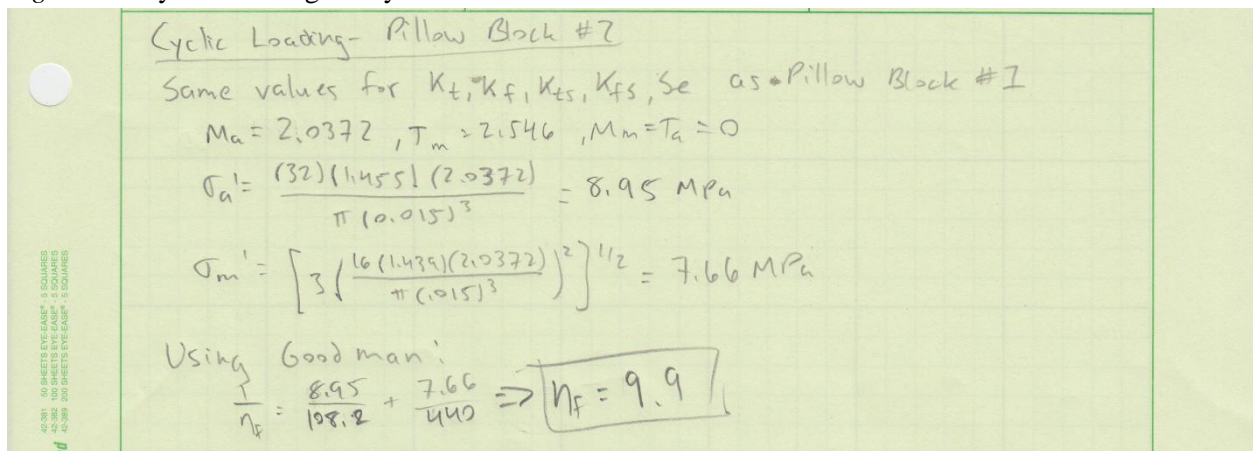 Cyclic Loading- Pillow Block #2
Same values for Kt, Kf, Kts, Kfs, Se as Pillow Block #1
Ma = 2.0372 , Tm = 2.546 , Mm = Ta = 0
σa' = (32)(1.455)(2.0372) / π(0.015)³ = 8.95 MPa
σm' = [3(16(1.439)(2.0372) / π(.015)³)²]^1/2 = 7.66 MPa
Using Goodman:
1/nf = 8.95/108.2 + 7.66/440 => nf = 9.9
42-381 50 SHEETS EYE-EASE® - 5 SQUARES
42-382 100 SHEETS EYE-EASE® - 5 SQUARES
42-389 200 SHEETS EYE-EASE® - 5 SQUARES